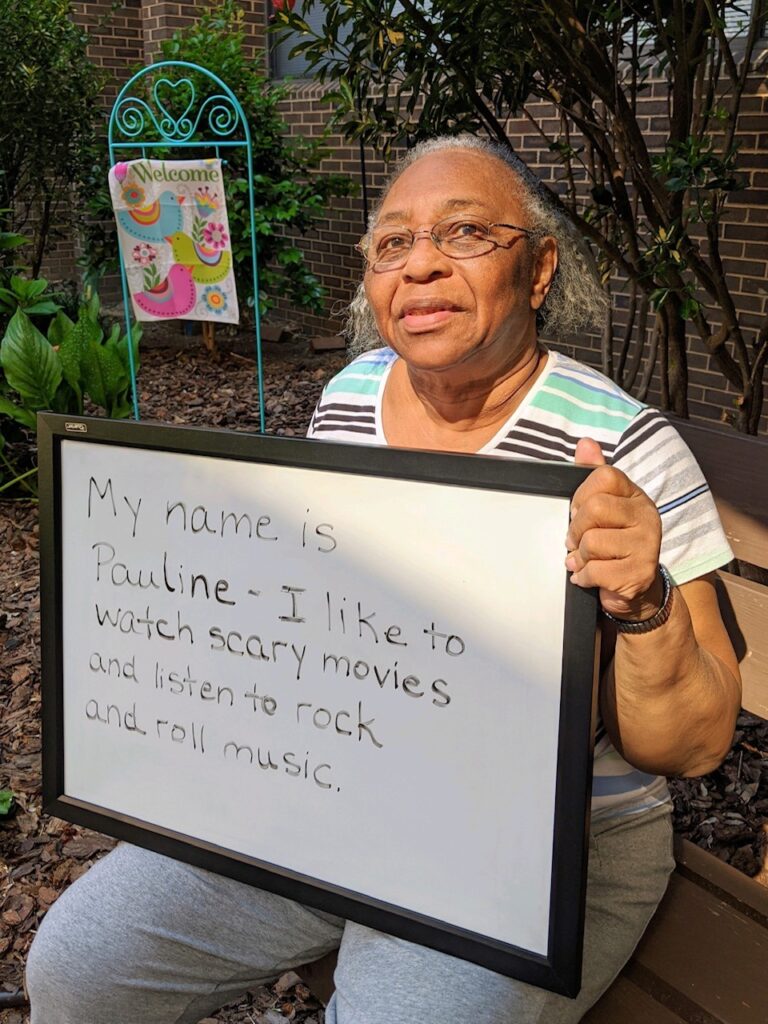 Welcome
My name is
Pauline - I like to
watch scary movies
and listen to rock
and roll music.